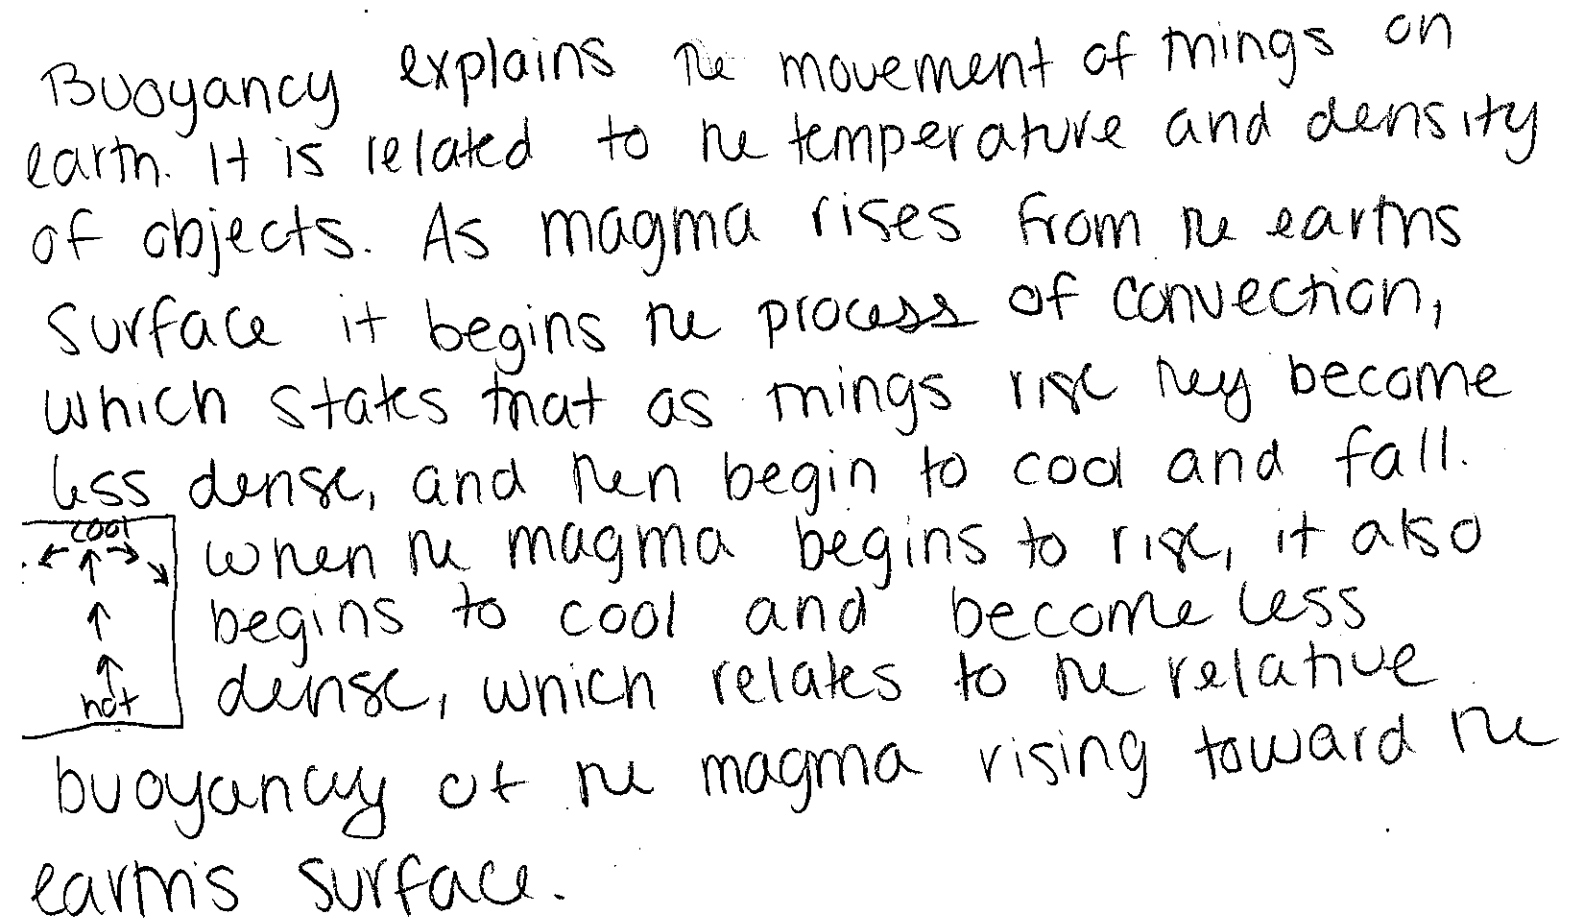 Buoyancy explains the movement of things on
earth. It is related to the temperature and density
of objects. As magma rises from the earths
surface it begins the process of convection,
which states that as things rise they become
less dense, and then begin to cool and fall.
cool
when the magma begins to rise, it also
begins to cool and become less
hot
dense, which relates to the relative
buoyancy of the magma rising toward the
earth's surface.